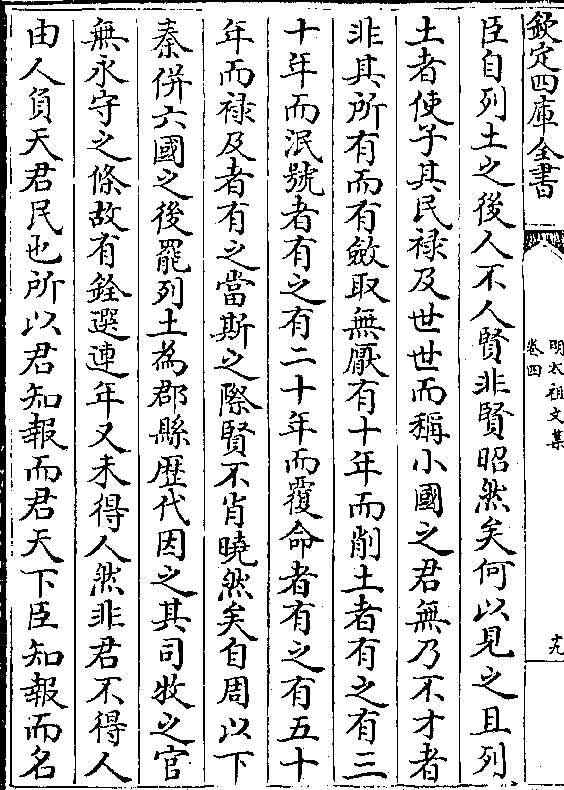 欽定四庫全書
明太祖文集
卷四
十九
臣自列土之後人不人賢非賢昭然矣何以見之且列
土者使子其民禄及世世而稱小國之君無乃不才者
非其所有而有斂取無厭有十年而削土者有之有三
十年而泯號者有之有二十年而覆命者有之有五十
年而禄及者有之當斯之際賢不肖曉然矣自周以下
秦併六國之後罷列土為郡縣歴代因之其司牧之官
無永守之條故有銓選連年又未得人然非君不得人
由人負天君民也所以君知報而君天下臣知報而名